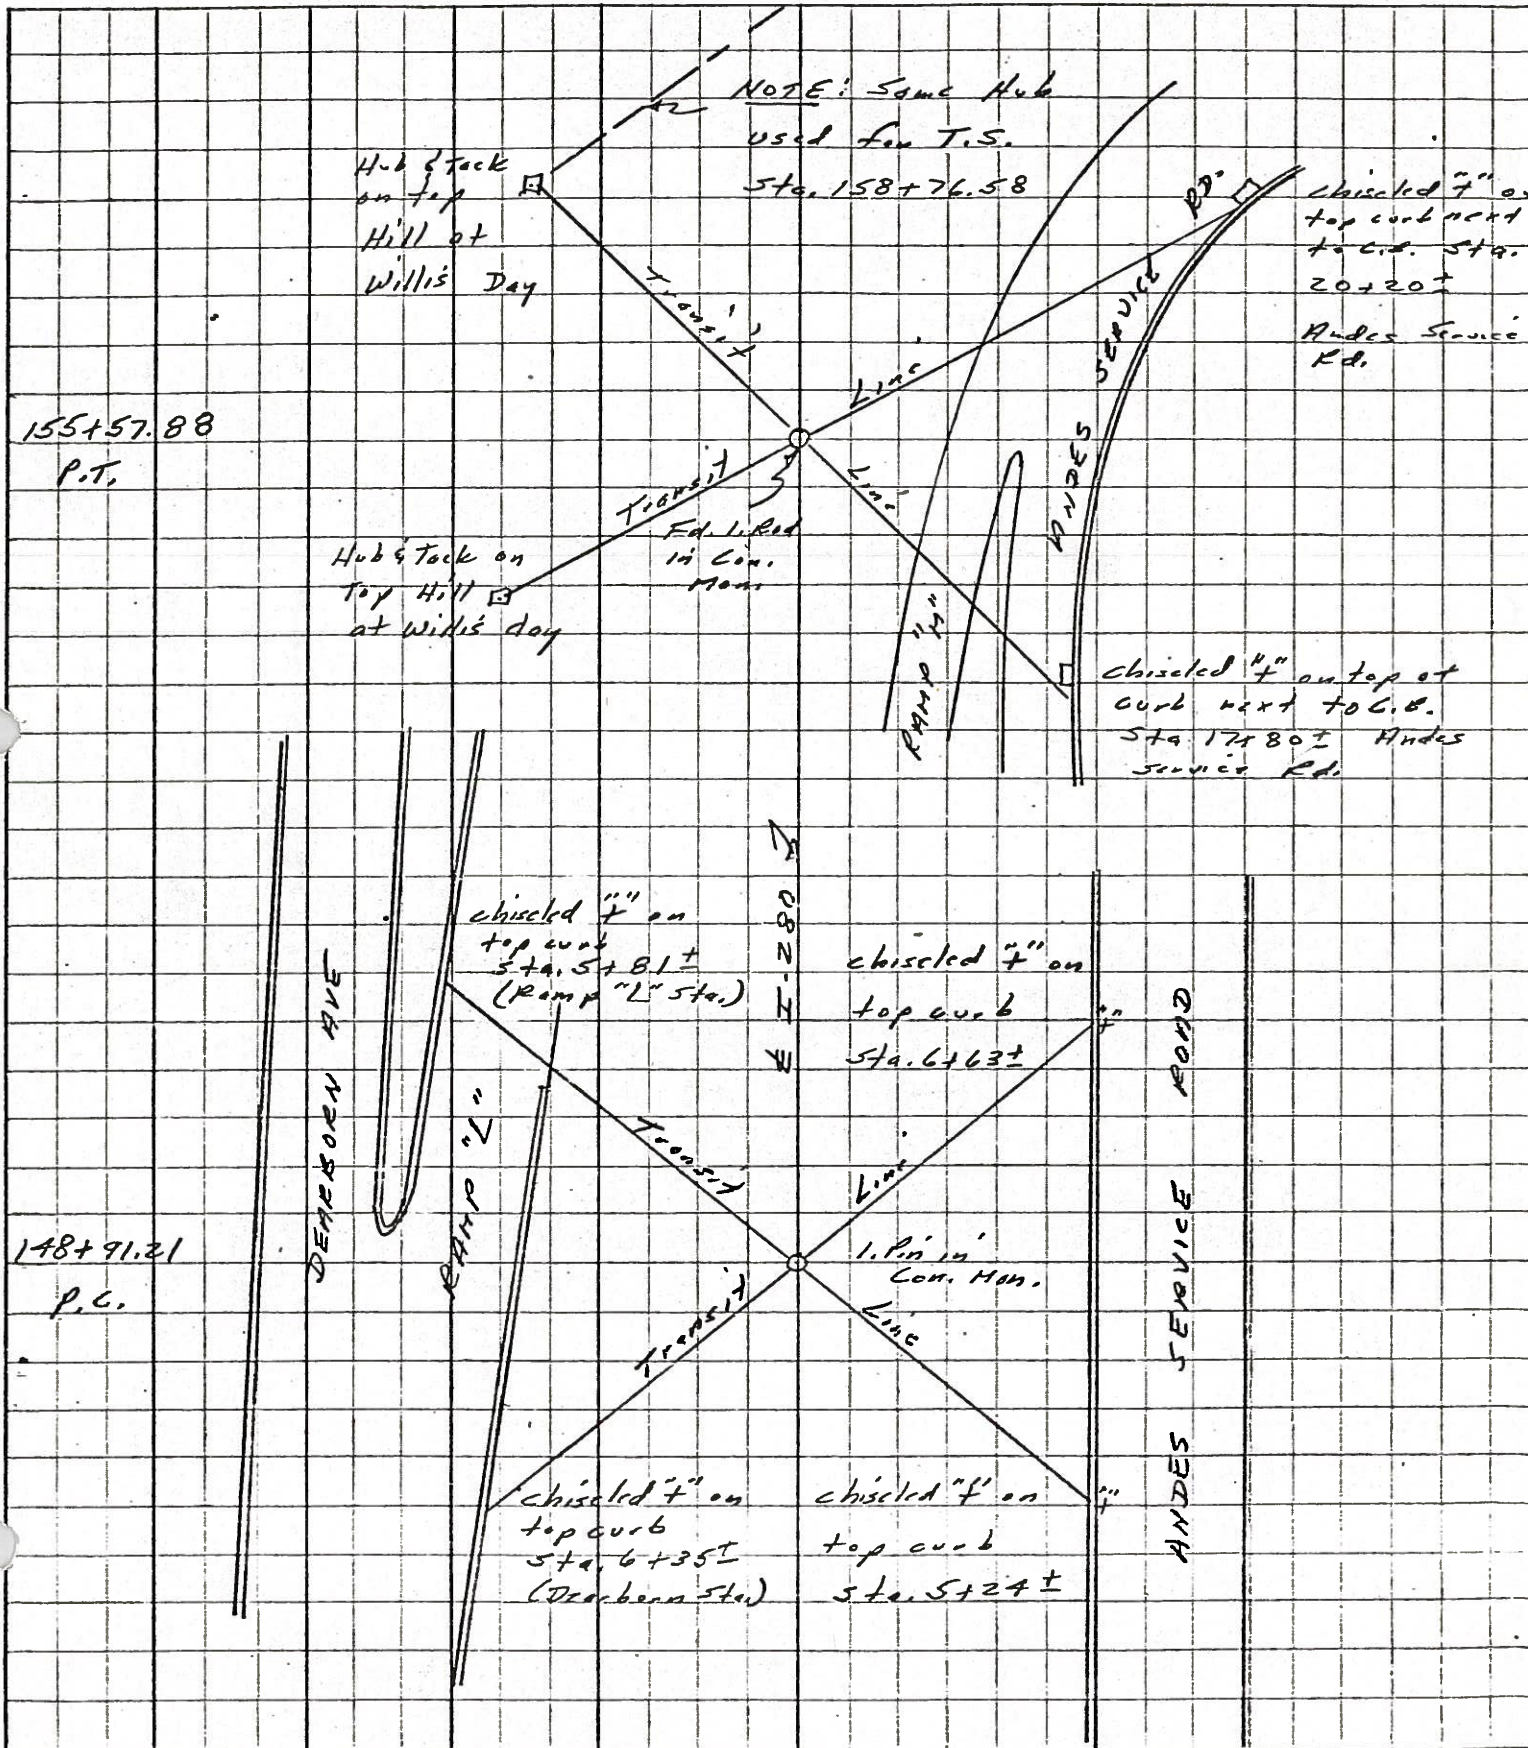 NOTE: Same Hub
used for T.S.
Sta. 158+76.58
Hub & Tack
on top
Hill at
Willis Day
chiseled "+" on
top curb next
to C.B. Sta.
20+20±
Andes Service
Rd.
Transit
Line
ANDES SERVICE RD.
155+57.88
P.T.
Transit
Line
Fd. I. Rod
in Con.
Mon.
Hub & Tack on
Top Hill
at Willis day
RAMP "M"
chiseled "+" on top of
curb next to C.B.
Sta 17+80± Andes
service Rd.
chiseled "+" on
top curb
sta. 5+81±
(Ramp "L" Sta.)
℄ I-280
chiseled "+" on
top curb
Sta. 6+63±
"+"
DEARBORN AVE
RAMP "L"
Transit
Line
148+91.21
P.C.
I. Pin in
Con. Mon.
Transit
Line
ANDES SERVICE ROAD
chiseled "+" on
top curb
Sta. 6+35±
(Dearborn Sta.)
chiseled "+" on
top curb
Sta. 5+24±
"+"